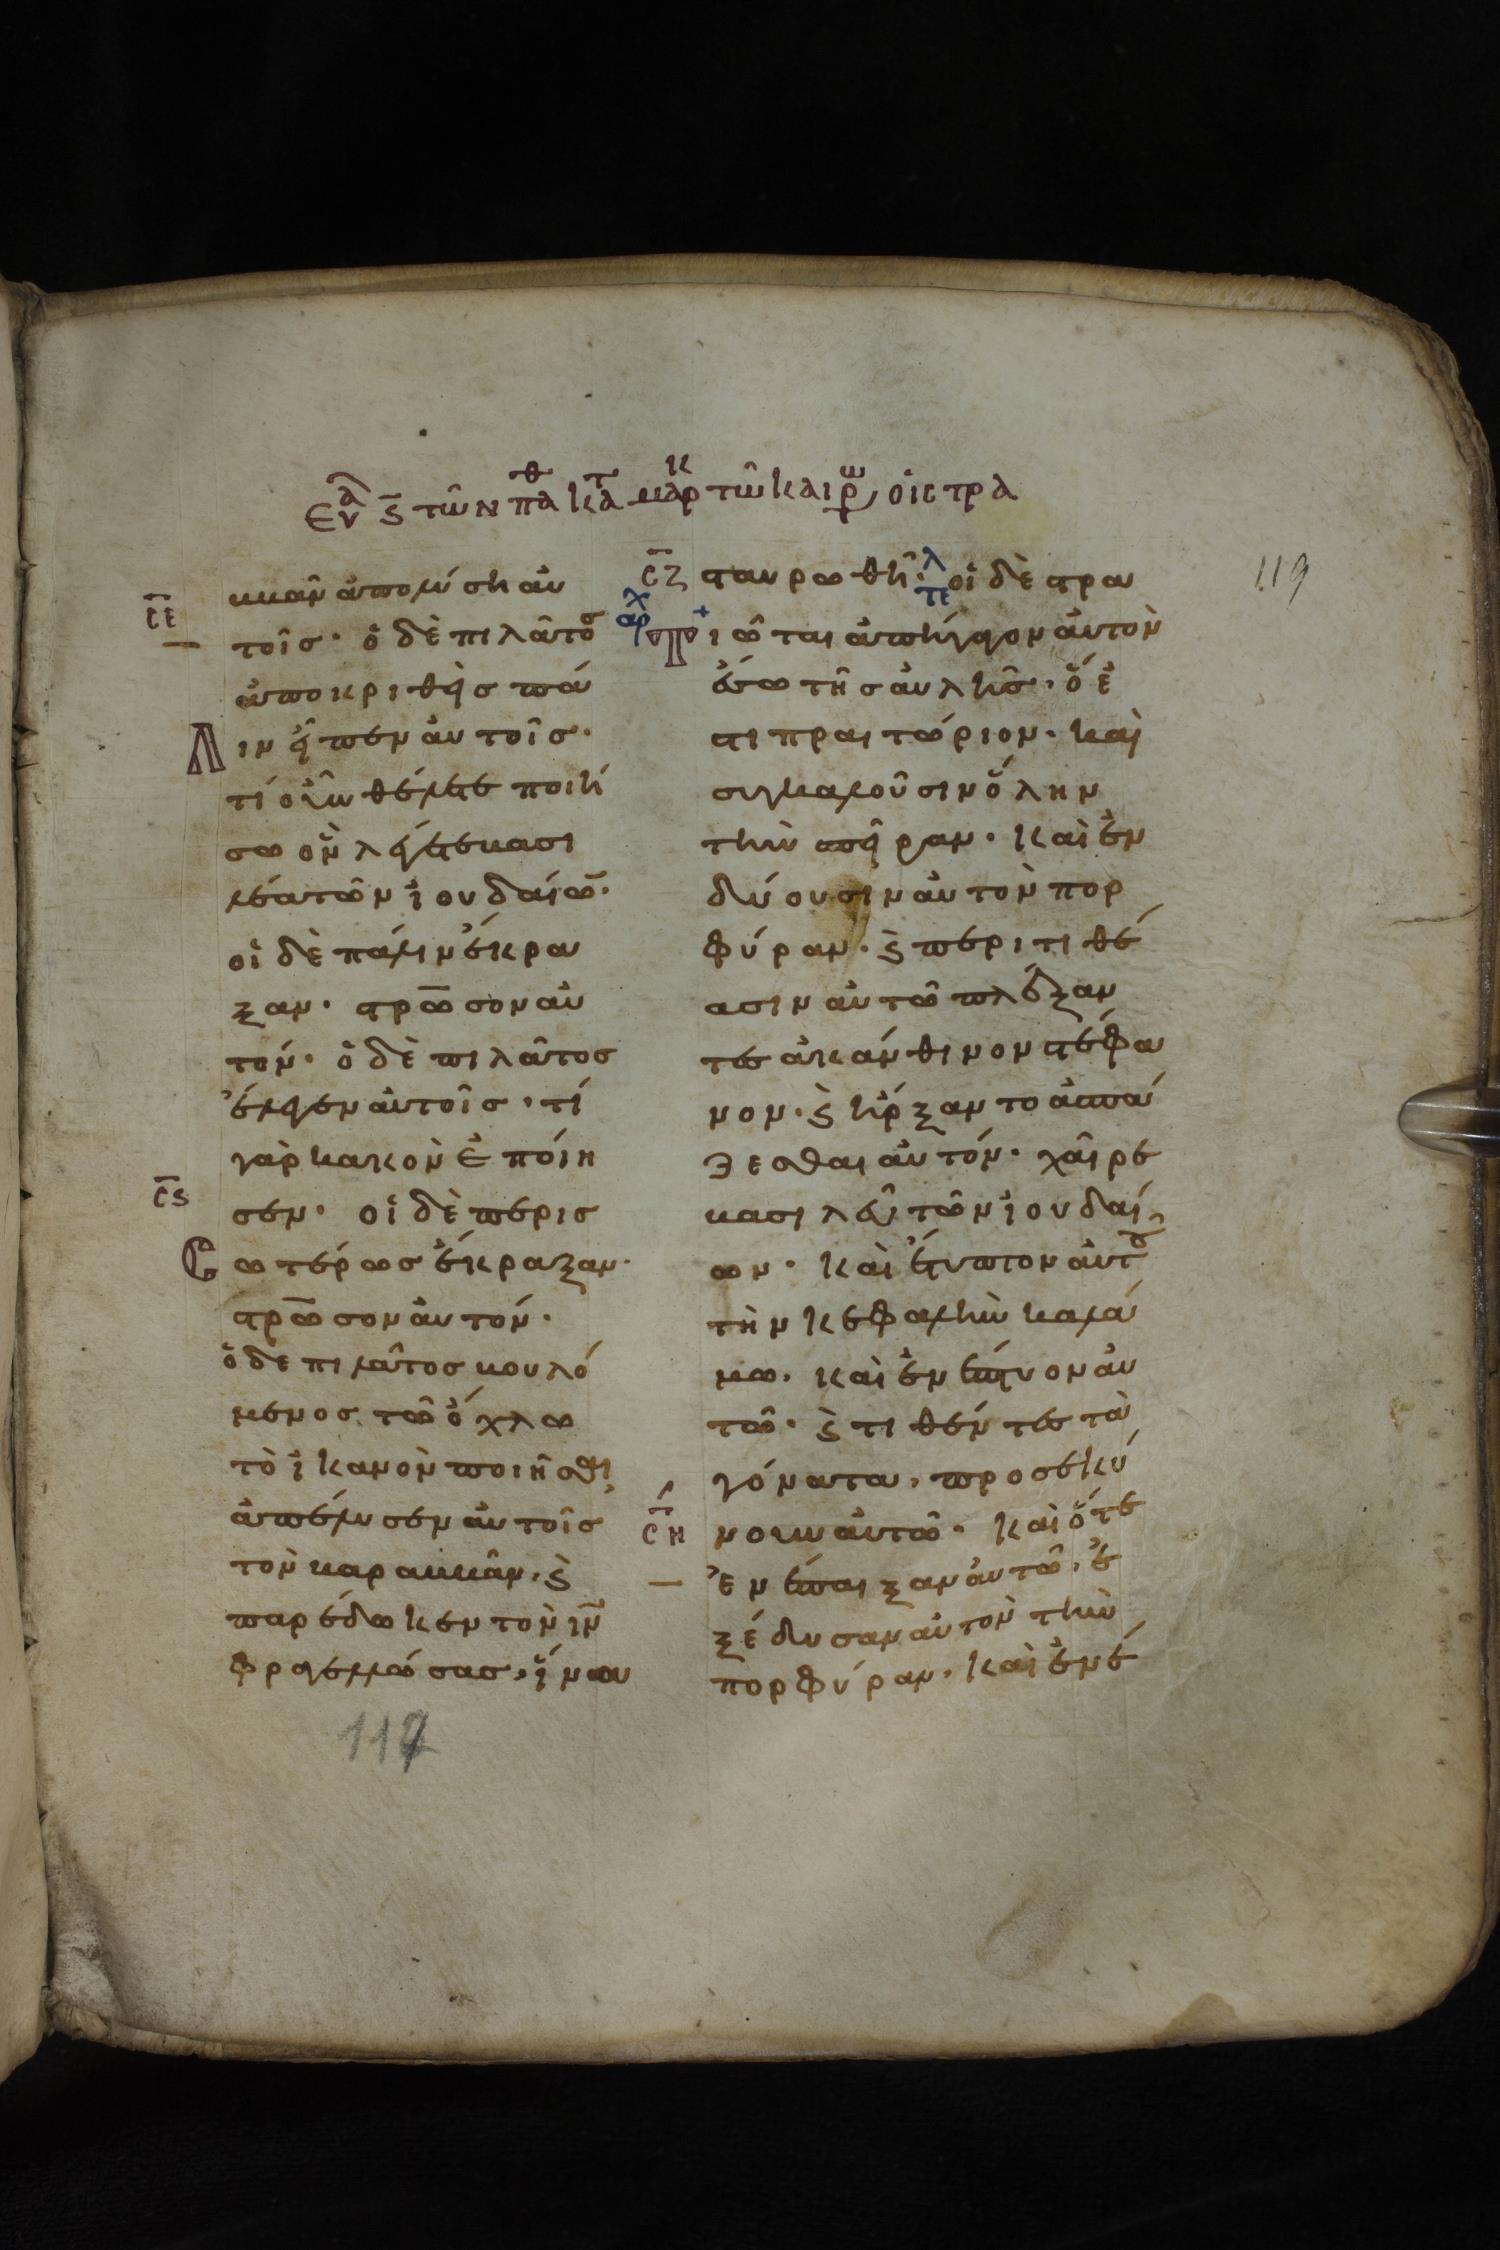 ββᾶν ἀπολύση αὐ
τοῖς· ὁ δὲ πιλᾶτος
ἀποκριθεὶς πά
λιν εἶπεν αὐτοῖς·
τί οὖν θέλετε ποιή
σω ὃν λέγετε βασι
λέα τῶν ἰουδαίω̅·
οἱ δὲ πάλιν ἔκρα
ξαν· στρ̅ωσον αὐ
τόν· ὁ δὲ πιλᾶτος
ἔλεγεν αὐτοῖς· τί
γὰρ κακὸν ἐποίη
σεν· οἱ δὲ περισ
σωτέρως ἔκραξαν·
στρ̅ωσον αὐτόν·
ὁ δε πιλᾶτος βουλό
μενος τῶ ὄχλω
τὸ ἱκανὸν ποιῆσαι
ἀπέλυσεν αὐτοῖς
τὸν βαραββᾶν, ϛ̀
παρέδωκεν τὸν ι̅ν̅
φραγελλώσας, ἵνα
σ̅ε̅
σ̅ϛ̅
σ̅ζ̅ σταυρωθῆ· οἱ δὲ στρα
τιῶται ἀπήγαγον αὐτὸν
ἔσω τῆς αὐλῆς· ὅ ἐ
στι πραιτώριον· καὶ
συγκαλοῦσιν ὅλην
τὴν σπεῖραν· καὶ ἐν
δύουσιν αὐτὸν πορ
φύραν· ϛ̀ περιτιθέ
ασιν αὐτῶ πλέξαν
τες ἀκάνθινον στέφα
νον· ϛ̀ ἤρξαντο ἀσπά
ζεσθαι αὐτόν· χαῖρε
βασιλεῦ τῶν ἰουδαί
ων· καὶ ἔτυπτον αὐτοῦ
τὴν κεφαλὴν καλά
μω. καὶ ἐνέπτυον αὐ
τῶ· ϛ̀ τιθέντες τὰ
γόνατα, προσεκύ
νουν αὐτῶ· καὶ ὅτε
ἐνέπαιξαν αὐτῶ, ἐ
ξέδυσαν αὐτὸν τὴν
πορφύραν· καὶ ἐνέ
σ̅η̅
119
117